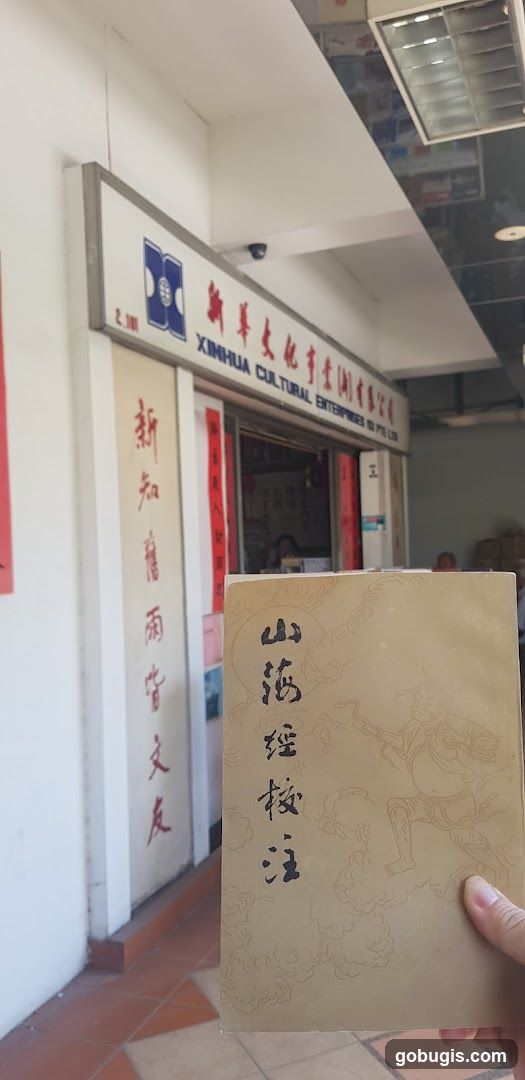 新華文化事業(新)有限公司
XINHUA CULTURAL ENTERPRISES (S) PTE LTD
新知舊雨皆文友
山海經校注
gobugis.com